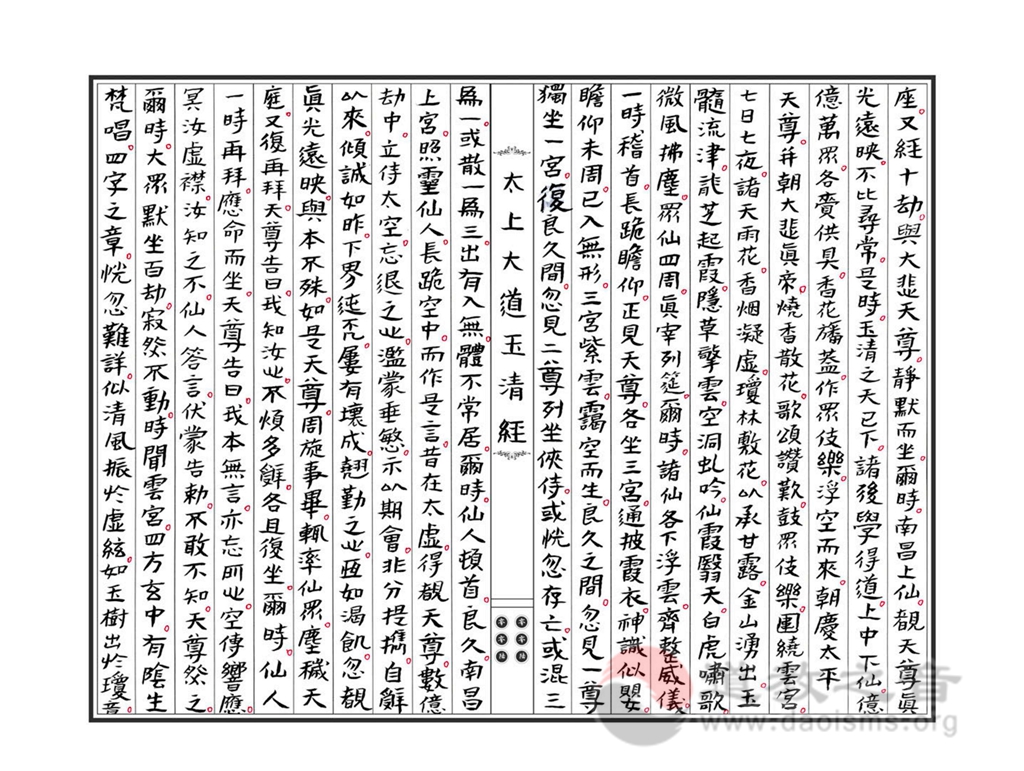 座又経十劫與大悲天尊靜默而坐爾時南昌上仙覩天尊眞
光遠映不比尋常是時玉清之天已下諸後學得道上中下仙億
億萬眾各賷供具香花旛蓋作眾伎樂浮空而來朝慶太平
天尊并朝大悲眞帝燒香散花歌頌讚歎鼓眾伎樂圍繞雲宮
七日七夜諸天雨花香烟凝虛瓊林敷花以承甘露金山湧出玉
髓流津龍芝起霞隱草擎雲空洞虬吟仙霞翳天白虎嘯歌
微風拂塵眾仙四周眞宰列筵爾時諸仙各下浮雲齊整威儀
一時稽首長跪瞻仰正見天尊各坐三宮通披霞衣神識似嬰
瞻仰未周已入無形三宮紫雲靄空而生良久之間忽見一尊
獨坐一宮復良久間忽見二尊列坐俠侍或恍忽存亡或混三
太上大道玉清經
爲一或散一爲三出有入無體不常居爾時仙人頓首良久南昌
上宮照靈仙人長跪空中而作是言昔在太虛得覩天尊數億
劫中立侍太空忘退之心濫蒙垂慜示以期會非分提攜自辭
以來傾誠如昨下界迍厄屢有壞成翹勤之心恆如渴飢忽覩
眞光遠映與本不殊如是天尊周旋事畢輒率仙眾塵穢天
庭又復再拜天尊告曰我知汝心不煩多辭各且復坐爾時仙人
一時再拜應命而坐天尊告曰我本無言亦忘所心空傳響應
冥汝虛襟汝知之不仙人答言伏蒙告勑不敢不知天尊然之
爾時大眾默坐百劫寂然不動時聞雲宮四方玄中有陰生
梵唱四字之章恍忽難詳似清風振於虛絃如玉樹出於瓊音
道教之音
www.daoisms.org